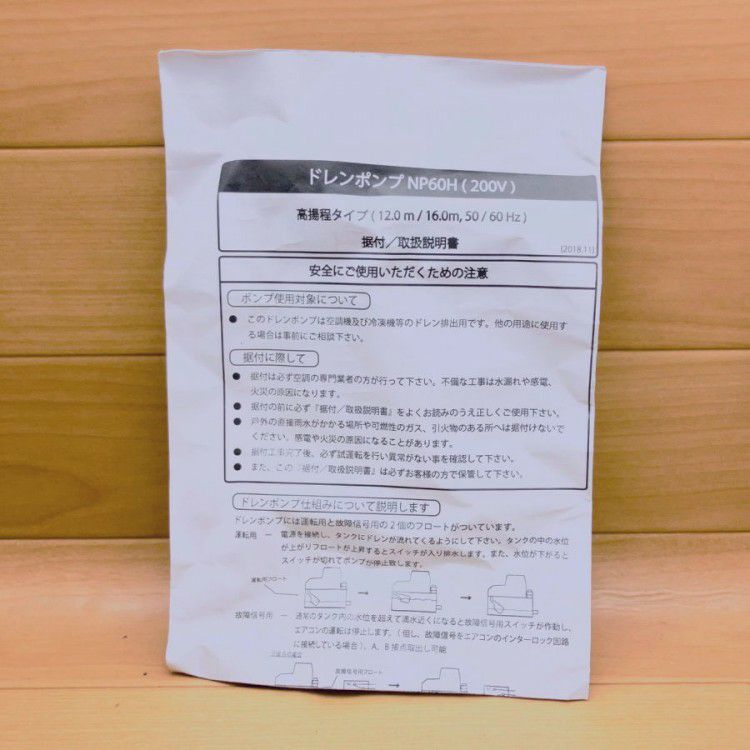 ドレンポンプ NP60H ( 200V )
高揚程タイプ ( 12.0 m / 16.0m, 50 / 60 Hz )
据付／取扱説明書
(2018.11)
安全にご使用いただくための注意
ポンプ使用対象について
● このドレンポンプは空調機及び冷凍機等のドレン排出用です。他の用途に使用す
る場合は事前にご相談下さい。
据付に際して
● 据付は必ず空調の専門業者の方が行って下さい。不備な工事は水漏れや感電、
火災の原因になります。
● 据付の前に必ず『据付／取扱説明書』をよくお読みのうえ正しくご使用下さい。
● 戸外の直接雨水がかかる場所や可燃性のガス、引火物のある所へは据付けないで
ください。感電や火災の原因になることがあります。
● 据付工事完了後、必ず試運転を行い異常がない事を確認して下さい。
● また、この『据付／取扱説明書』は必ずお客様の方で保管して下さい。
ドレンポンプ仕組みについて説明します
ドレンポンプには運転用と故障信号用の２個のフロートがついています。
運転用 ー 電源を接続し、タンクにドレンが流れてくるようにして下さい。タンクの中の水位
が上がりフロートが上昇するとスイッチが入り排水します。また、水位が下がると
スイッチが切れてポンプが停止致します。
運転用フロート
故障信号用 ー 通常のタンク内の水位を超えて満水近くになると故障信号用スイッチが作動し、
エアコンの運転は停止します。（但し、故障信号をエアコンのインターロック回路
に接続している場合）、A、B 接点取出し可能
故障信号用フロート